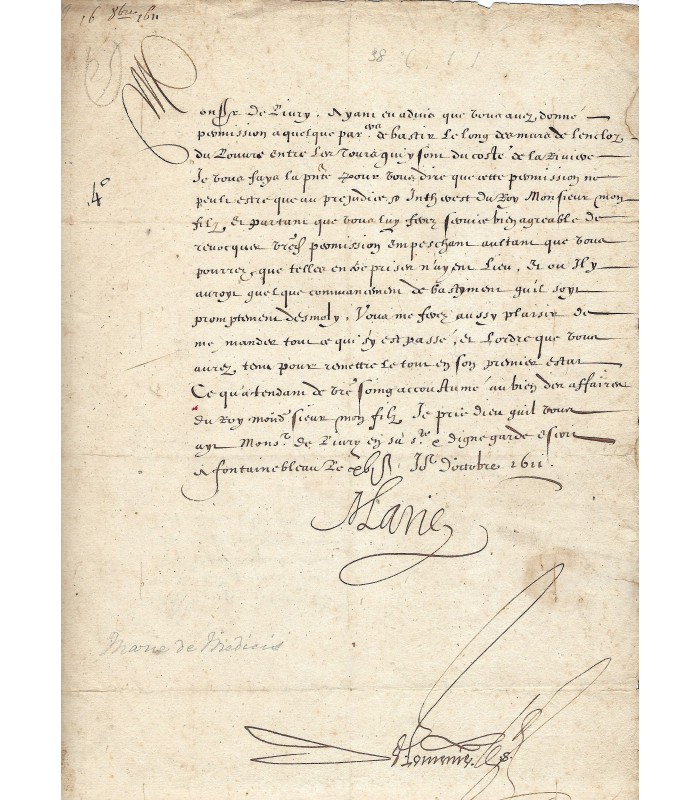 16 8bre 1611
38
Monsr de Liury, Ayant eu aduis que vous auez donné
permission a quelque par.ers de bastir le long des murs de lenclos
du Louure entre les Tours qui y sont du costé de la Riuiere
Je vous fays la pnte pour vous dire que cette permission ne
peult estre que au prejudice & Inthérest du Roy Monsieur mon
filz, et partant que vous luy ferez seruice bien agreable de
reuocquer vre permission empeschant aultant que vous
pourrez, que telles entreprises n'ayent lieu, Et ou Il y
auroyt quelque commancement de bastyment qu'il soyt
promptement desmoly, Vous me ferez aussy plaisir de
me mander tout ce qui s'y est passé, et l'ordre que vous
aurez, tenu pour remettre le tout en son premier estat
Ce qu'atendant de vre soing accoustumé au bien des affaires
du Roy mond sieur mon filz Je prie dieu quil vous
ayt Monsr de Liury en sa ste & digne garde escrit
a fontainebleau le xvje Jr d'octobre 1611.
4o
Marie
Marie de Médicis